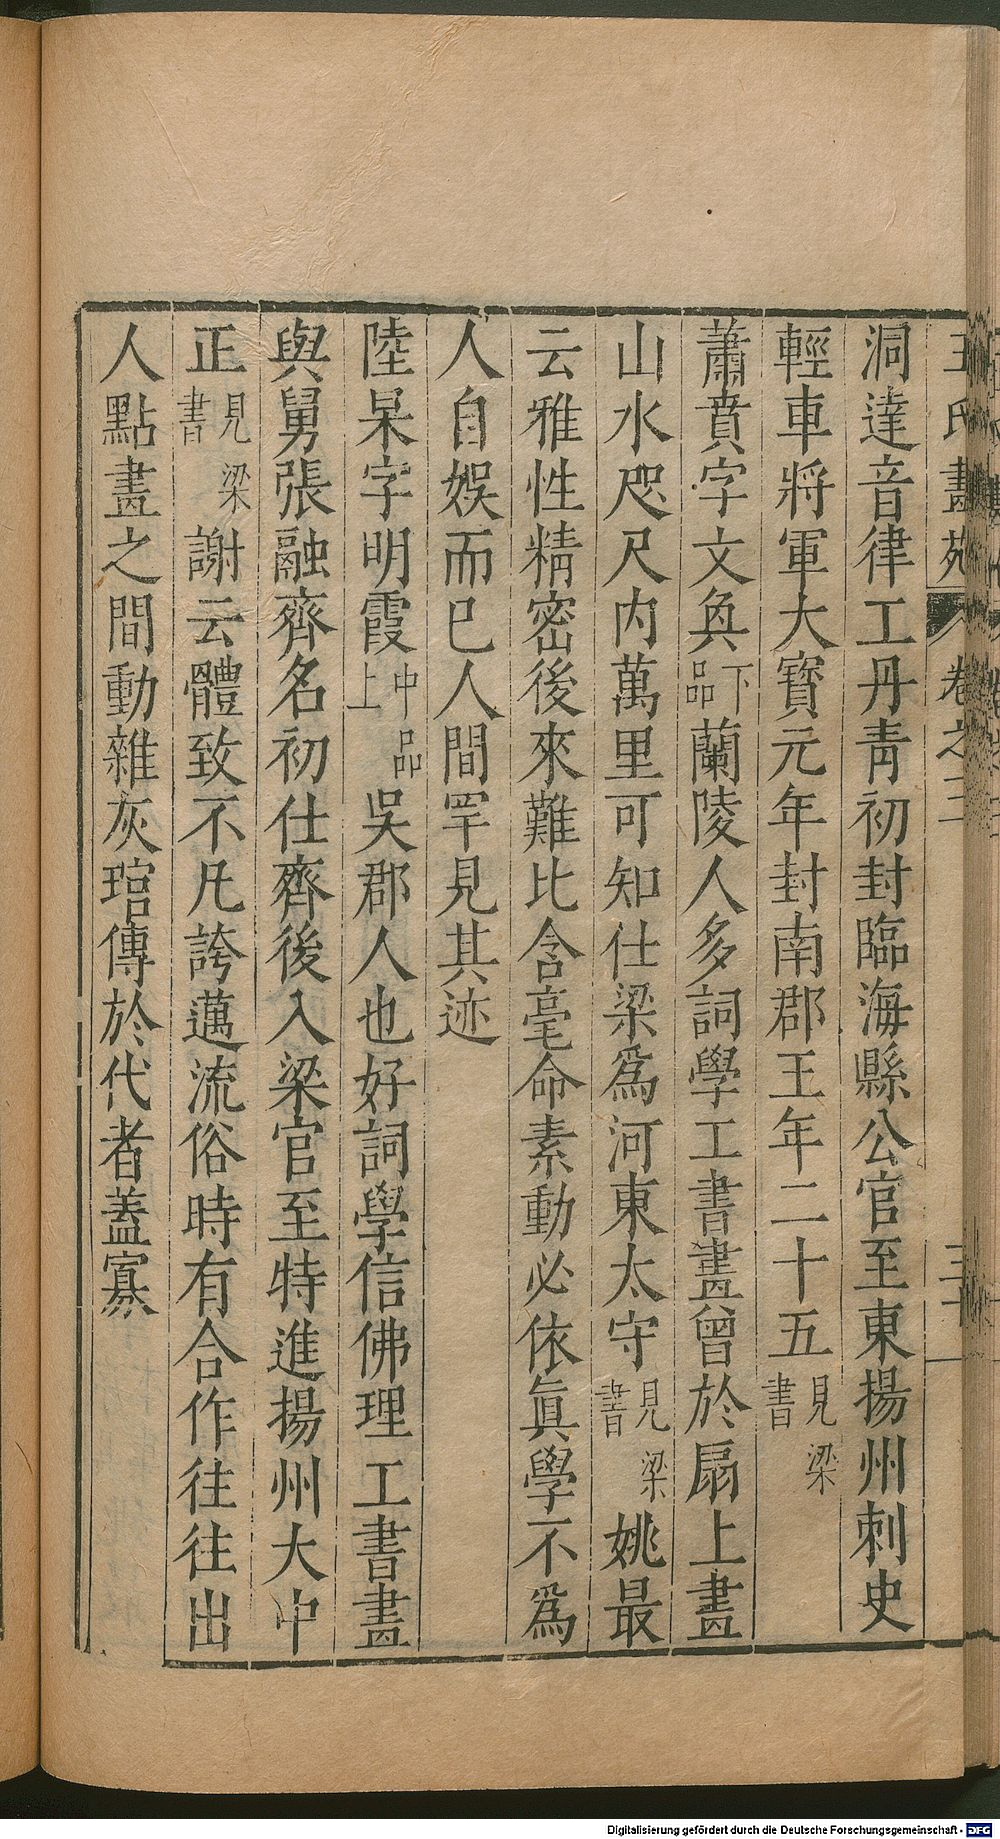 王氏畫苑 卷之三
洞達音律工丹青初封臨海縣公官至東揚州刺史
輕車將軍大寶元年封南郡王年二十五見梁書
蕭賁字文奐下品蘭陵人多詞學工書畫曾於扇上畫
山水咫尺內萬里可知仕梁爲河東太守見梁書姚最
云雅性精密後來難比含毫命素動必依眞學不爲
人自娛而已人間罕見其迹
陸杲字明霞中品上吳郡人也好詞學信佛理工書畫
與舅張融齊名初仕齊後入梁官至特進揚州大中
正見梁書謝云體致不凡誇邁流俗時有合作往往出
人點畫之間動雜灰琯傳於代者蓋寡
Digitalisierung gefördert durch die Deutsche Forschungsgemeinschaft - DFG